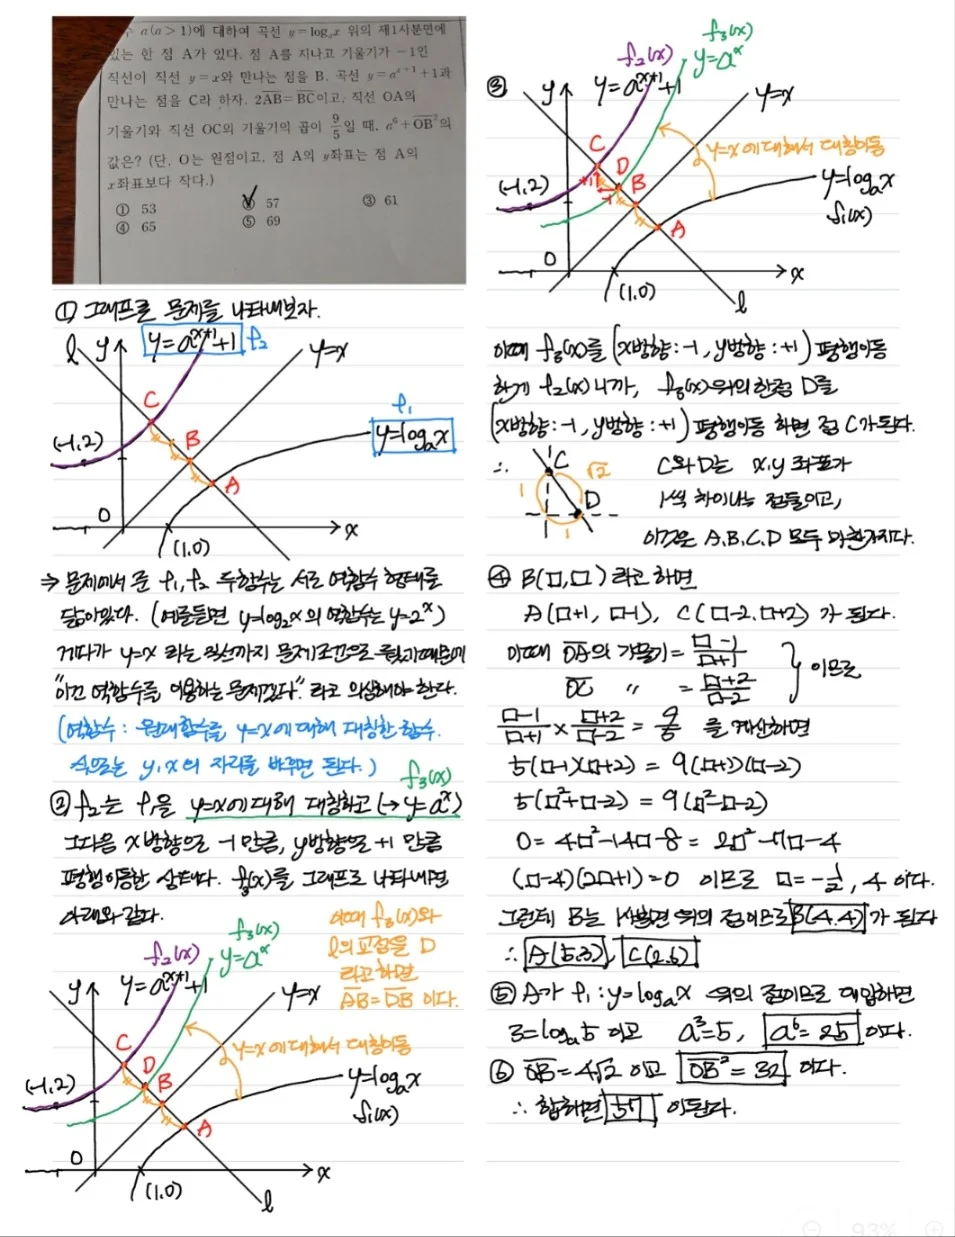 수 a(a > 1)에 대하여 곡선 y = logₐx 위의 제1사분면에
있는 한 점 A가 있다. 점 A를 지나고 기울기가 −1인
직선이 직선 y = x와 만나는 점을 B, 곡선 y = aˣ⁺¹ + 1과
만나는 점을 C라 하자. 2AB = BC이고, 직선 OA의
기울기와 직선 OC의 기울기의 곱이 9/5일 때, a⁶ + OB²의
값은? (단, O는 원점이고, 점 A의 y좌표는 점 A의
x좌표보다 작다.)
① 53 ② 57 ③ 61
④ 65 ⑤ 69
① 그래프로 문제를 나타내보자.
l y y=aˣ⁺¹+1 f₂ y=x
C f₁
(-1,2) B y=logₐx
A
O (1,0) x
⇒ 문제에서 준 f₁, f₂ 두함수는 서로 역함수 형태를
닮아있다. (예를들면 y=log₂x의 역함수는 y=2ˣ)
거다가 y=x 라는 직선까지 문제조건으로 줬기때문에
"이건 역함수를 이용하는 문제겠다." 라고 의심해야 한다.
(역함수 : 원래함수를 y=x에 대해 대칭한 함수.
식으로는 y, x의 자리를 바꾸면 된다.)
f₃(x)
② f₂는 f₁을 y=x에 대해 대칭하고 (→ y=aˣ)
그다음 x방향으로 -1만큼, y방향으로 +1 만큼
평행이동한 상태다. f₃(x)를 그래프로 나타내면
아래와 같다.
이때 f₃(x)와
l의 교점을 D
라고 하면
AB=DB 이다.
f₂(x) f₃(x)
y y=aˣ⁺¹+1 y=aˣ y=x
C D B y=x에 대해서 대칭이동
(-1,2) y=logₐx
A f₁(x)
O (1,0) x
l
③ f₂(x) f₃(x)
y y=aˣ⁺¹+1 y=aˣ y=x
C y=x에 대해서 대칭이동
(-1,2) +1 D B y=logₐx
-1 A f₁(x)
O (1,0) x
l
이때 f₃(x)를 (x방향:-1, y방향:+1) 평행이동
한게 f₂(x)니까, f₃(x)위의 한점 D를
(x방향:-1, y방향:+1) 평행이동 하면 점 C가 된다.
∴ C √2 1 D 1
C와 D는 x,y 좌표가
1씩 차이나는 점들이고,
이것은 A,B,C,D 모두 마찬가지다.
④ B(□,□) 라고 하면
A(□+1, □-1), C(□-2, □+2) 가 된다.
이때 OA의 기울기 = □-1/□+1
OC 〃 = □+2/□-2 } 이므로
□-1/□+1 × □+2/□-2 = 9/5 를 계산하면
5(□-1)(□+2) = 9(□+1)(□-2)
5(□²+□-2) = 9(□²-□-2)
0 = 4□²-14□-8 = 2□²-7□-4
(□-4)(2□+1)=0 이므로 □=-1/2, 4 이다.
그런데 B는 1사분면 위의 점이므로 B(4,4) 가 된다
∴ A(5,3), C(2,6)
⑤ A가 f₁: y=logₐx 위의 점이므로 대입하면
3=logₐ5 이고 a³=5, a⁶=25 이다.
⑥ OB=4√2 이고 OB²=32 이다.
∴ 합하면 57 이된다.
93%